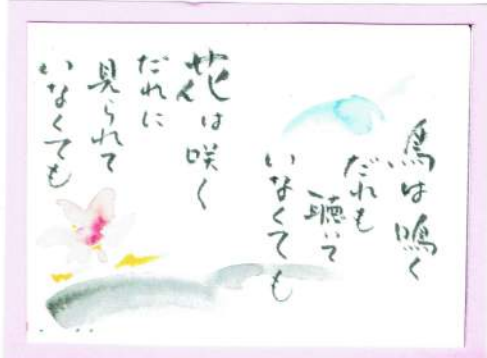 鳥は鳴く
だれも
聴いて
いなくても
花は咲く
だれに
見られて
いなくても